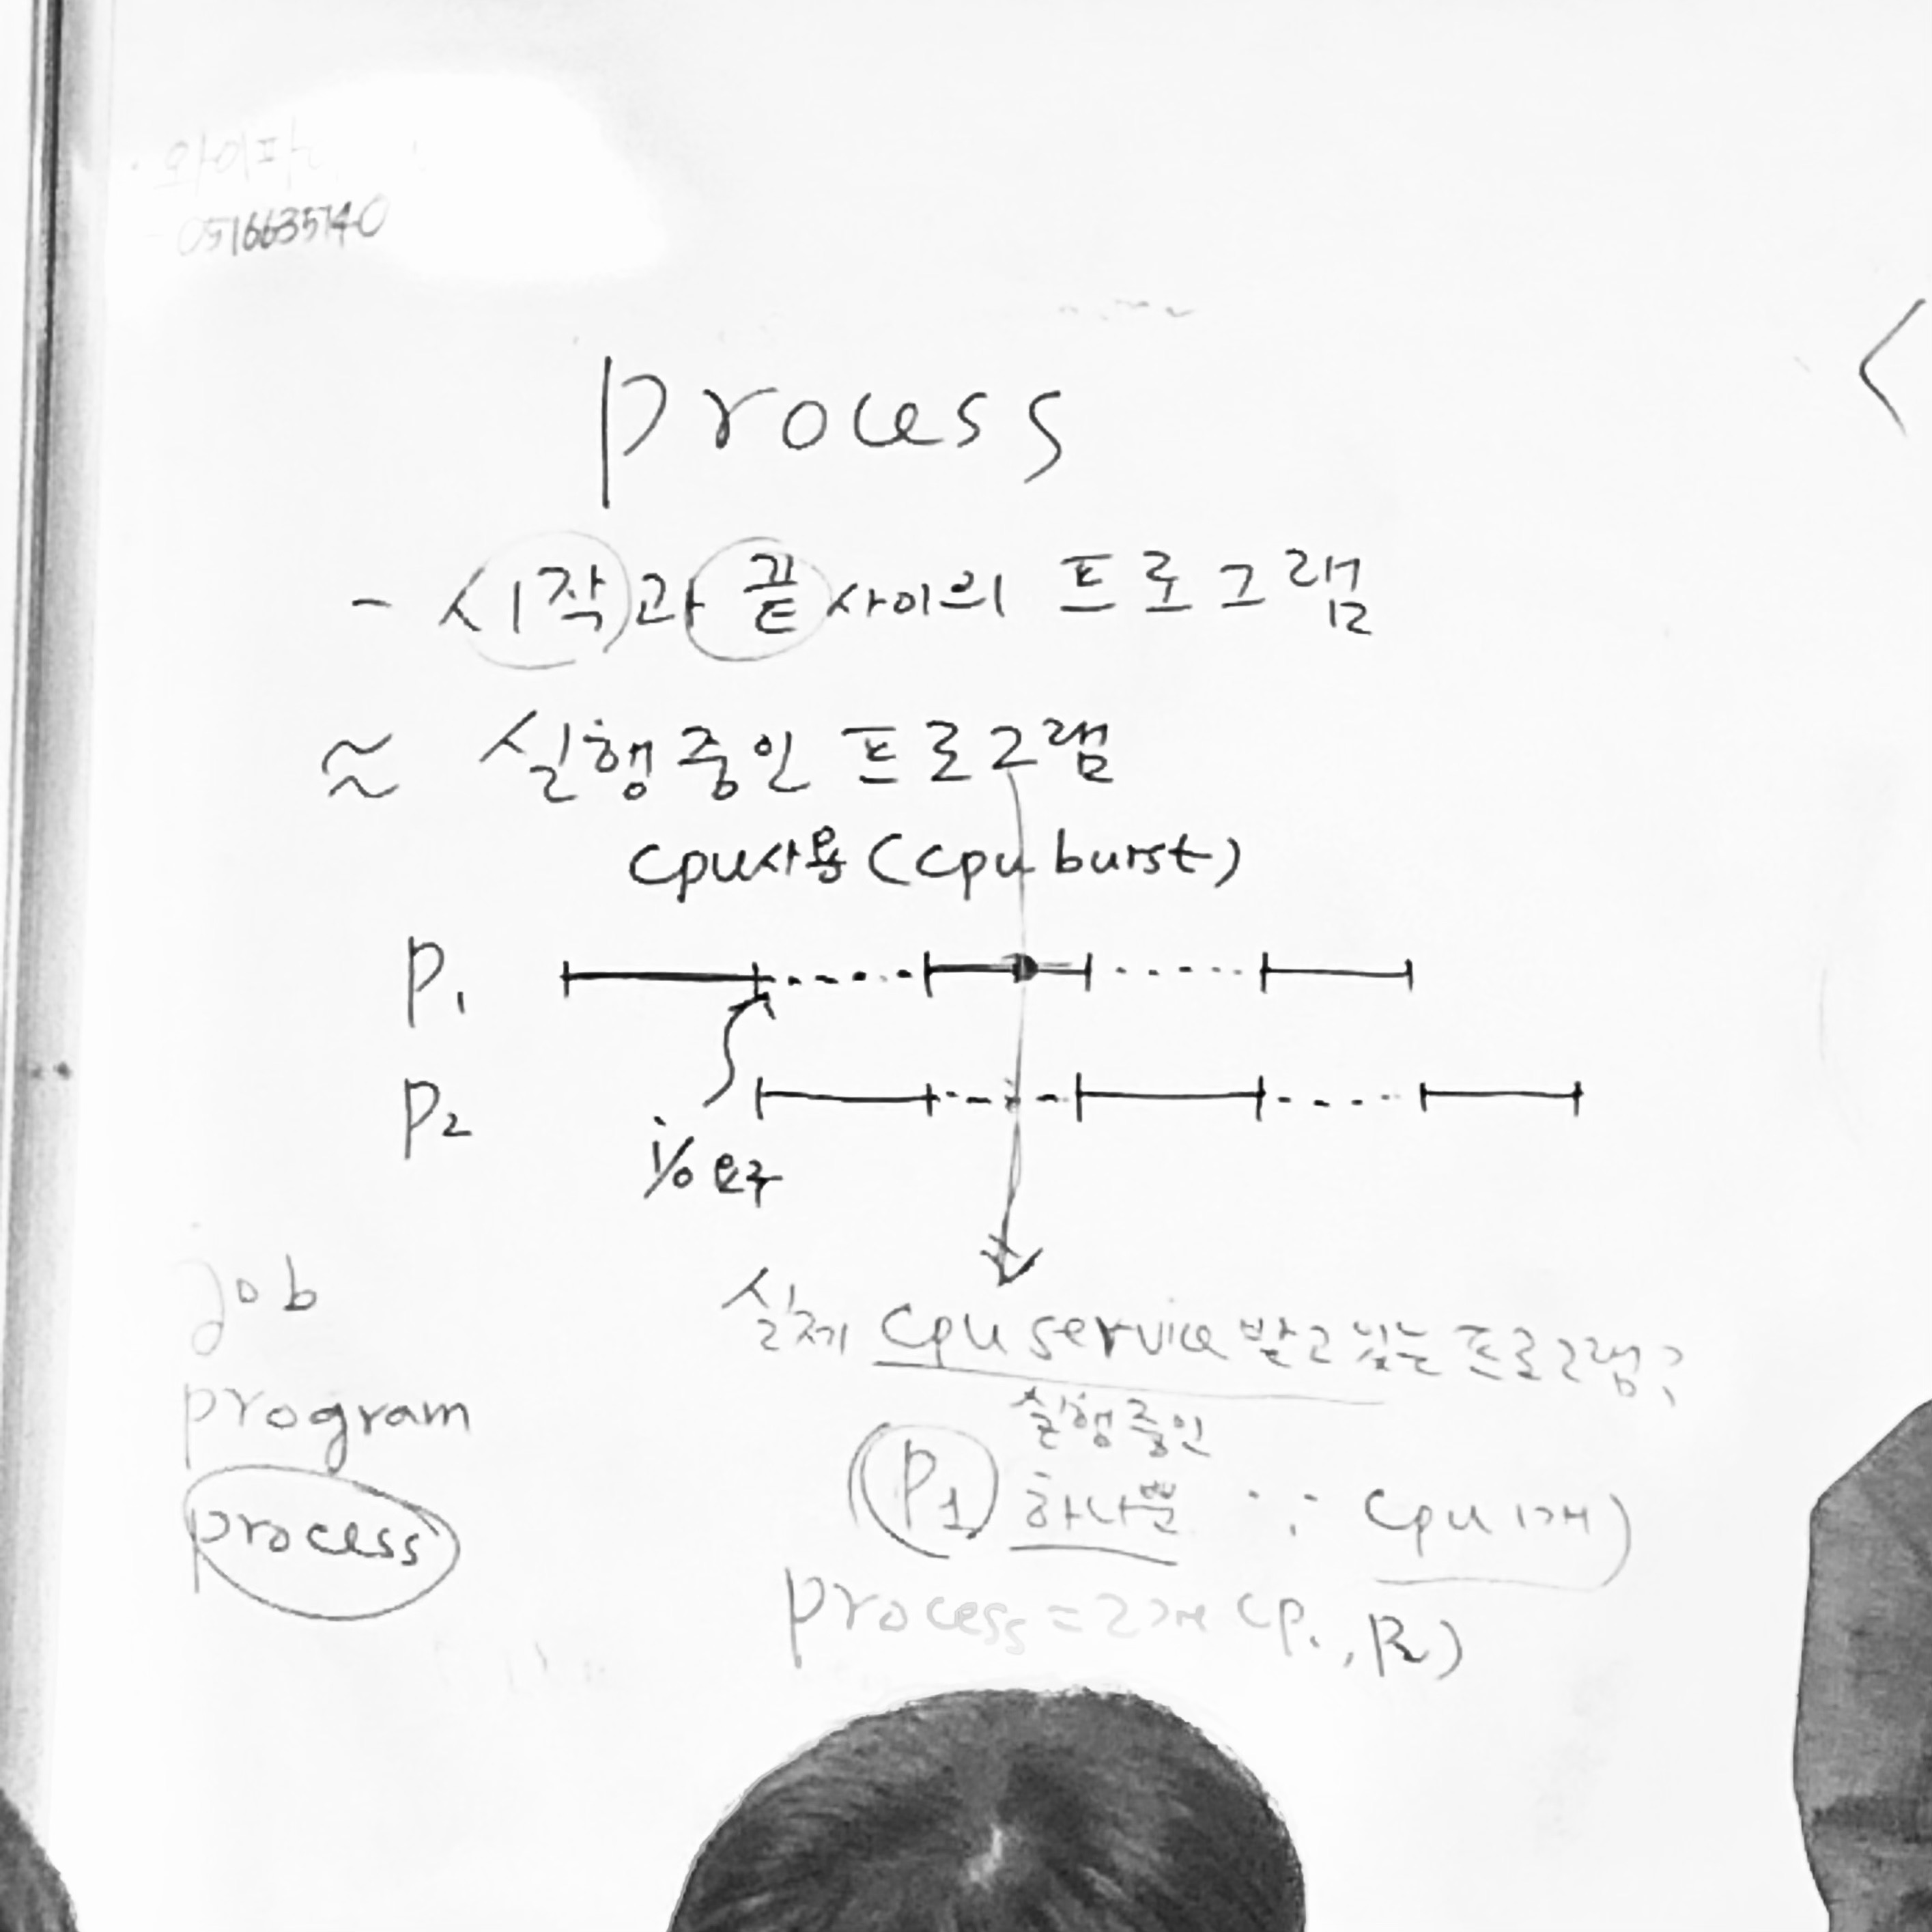 와이파
0516635740
process
- 시작과 끝 사이의 프로그램
≈ 실행중인 프로그램
cpu사용 (cpu burst)
P1
P2
i/o 요구
job
program
process
실제 cpu service 받고 있는 프로그램?
실행중인
P1 하나뿐 ∵ cpu 1개)
process = 2개 (P1, P2)